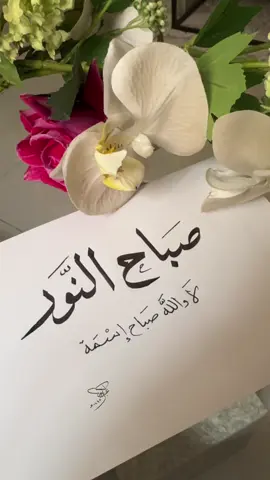 صَبَاح النَّوَر
لَا وَاللَّه صَبَاح إِسْمَهَ